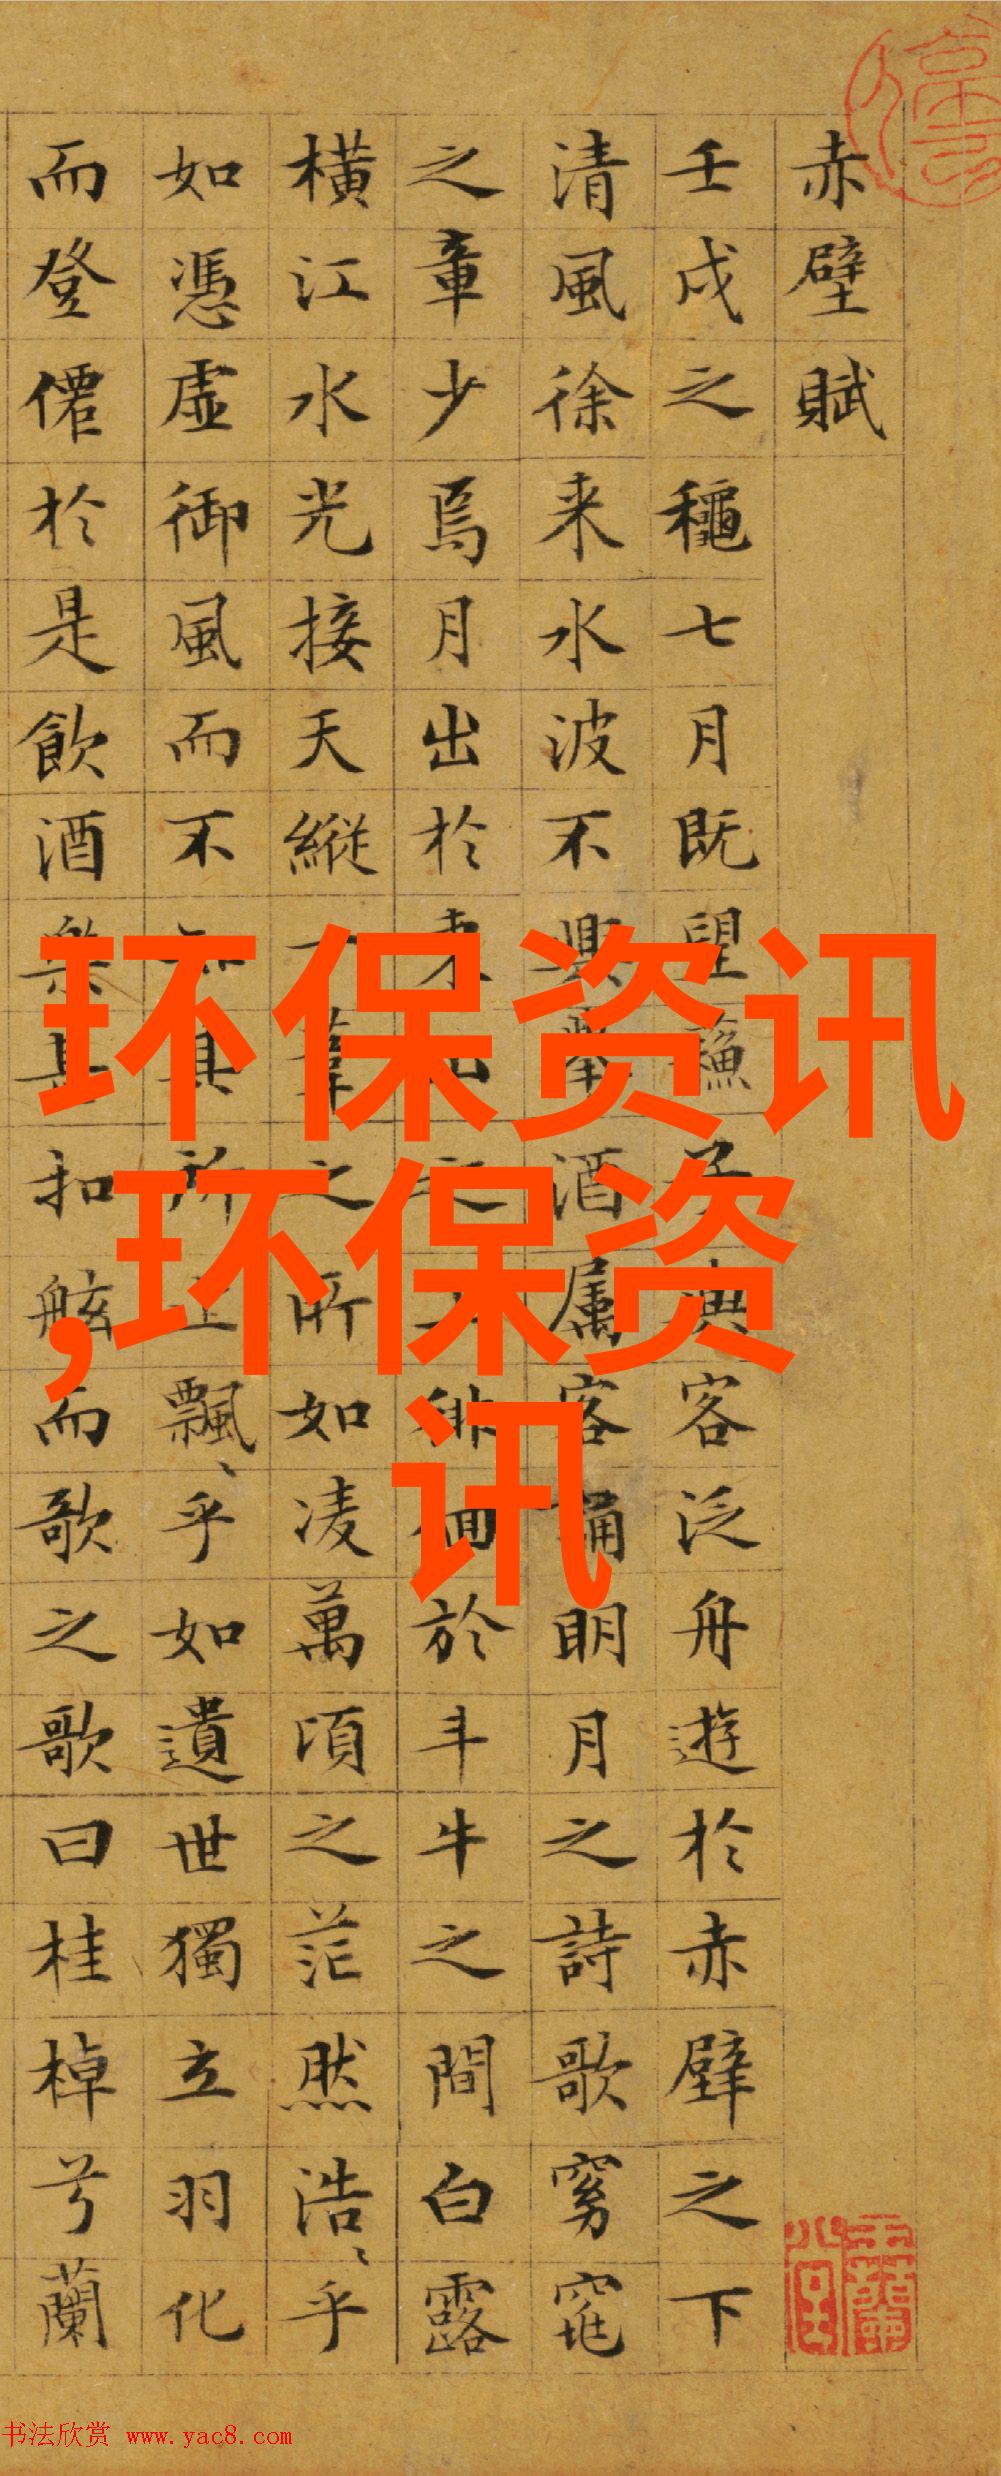 赤壁賦
壬戌之穐七月既望蘓子與客泛舟遊於赤壁之下
清風徐来水波不興舉酒属客誦明月之詩歌窈窕
之章少焉月出於東山之上徘徊於斗牛之間白露
橫江水光接天縱一葦之所如凌萬頃之茫然浩〻乎
如憑虛御風而不知其所止飄〻乎如遺世獨立羽化
而登僊於是飲酒樂甚扣舷而歌之歌曰桂棹兮蘭
环保资讯
,环保资
讯
书法欣赏 www.yac8.com